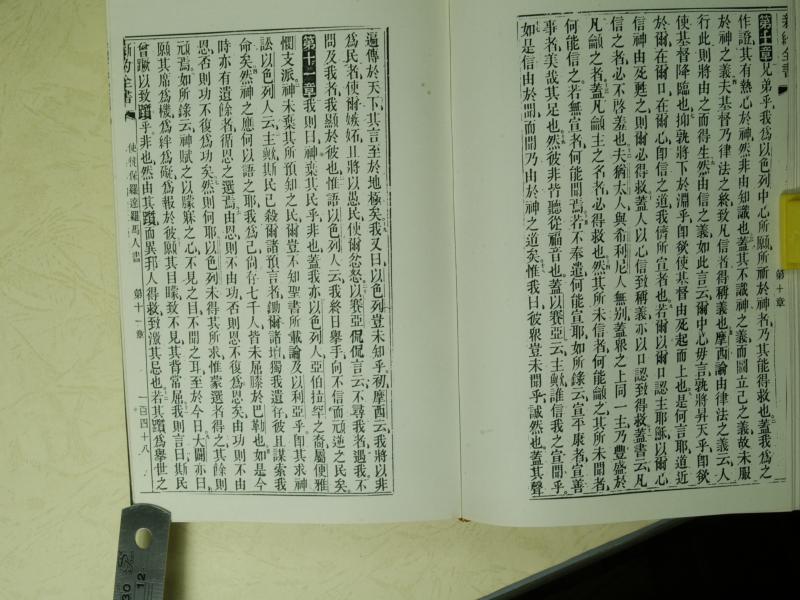 新約全書
第十章兄弟乎我爲以色列中心所願所祈於神者乃其能得救也蓋我爲之
作證其有熱心於神然非由知識也蓋其不識神之義而圖立己之義故未服
於神之義夫基督乃律法之終致凡信者得稱義也摩西論由律法之義云人
行此則將由之而得生然由信之義如此言云爾中心毋言孰將升天乎卽欲
使基督降臨也抑孰將下於淵乎卽欲使基督由死起而上也是何言耶道近
於爾在爾口在爾心卽信之道我儕所宣者也若爾以爾口認主耶穌以爾心
信神由死甦之則爾必得救蓋人以心信致稱義亦以口認致得救蓋書云凡
信之者必不啓羞也夫猶太人與希利尼人無别蓋衆之上同一主乃豐盛於
凡籲之者蓋凡籲主之名者必得救也然其所未信者何能籲之其所未聞者
何能信之若無宣者何能聞焉若不奉遣何能宣耶如所錄云宣平康者宣善
事者美哉其足也然彼非皆聽從福音也蓋以賽亞云主歟誰信我之宣聞乎
如是信由於聞而聞乃由於神之道矣惟我曰彼衆豈未聞乎誠然也蓋其聲
第十章
遍傳於天下其言至於地極矣我又曰以色列豈未知乎初摩西云我將以非
爲民者使爾嫉妬且將以愚民使爾忿怒以賽亞侃侃言云不尋我者遇我不
問及我者我顯於彼也惟語以色列人云我終日舉手向不信而頑逆之民矣
第十一章我則曰神棄其民乎非也蓋我亦以色列人亞伯拉罕之裔屬便雅
憫支派神未棄其所預知之民爾豈不知聖書所載論及以利亞乎卽其求神
訟以色列人云主歟斯民已殺爾諸預言者鋤爾諸壇獨我遺存彼且謀索我
命矣然神之應何以語之耶我爲己尙存七千人皆未屈膝於巴勒也如是今
時亦有遺餘者循恩之選焉由恩則不由功否則恩不復爲恩矣由功則不由
恩否則功不復爲功矣然則何耶以色列未得其所求惟蒙選者得之其餘則
頑焉如所錄云神賦之以朦寐之心不見之目不聞之耳至於今日大闢亦曰
願其席爲機爲絆爲礙爲報於彼願其目矇致不見其背常屈我則言曰斯民
曾蹶以致躓乎非也然由其躓而異邦人得救致激其忌也若其躓爲舉世之
新約全書
使徒保羅達羅馬人書
第十一章
一百四十八
30
12